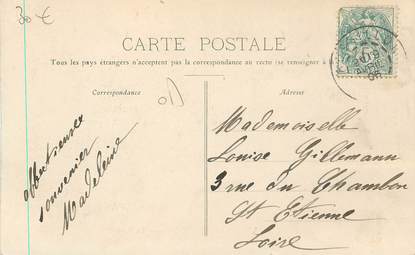 30 €
CARTE POSTALE
Tous les pays étrangers n'acceptent pas la correspondance au recto (se renseigner à
Correspondance
Adresse
affectueux
souvenir
Madeleine
Mademoiselle
Louise Gillemann
3 rue du Chambon
St Etienne
Loire